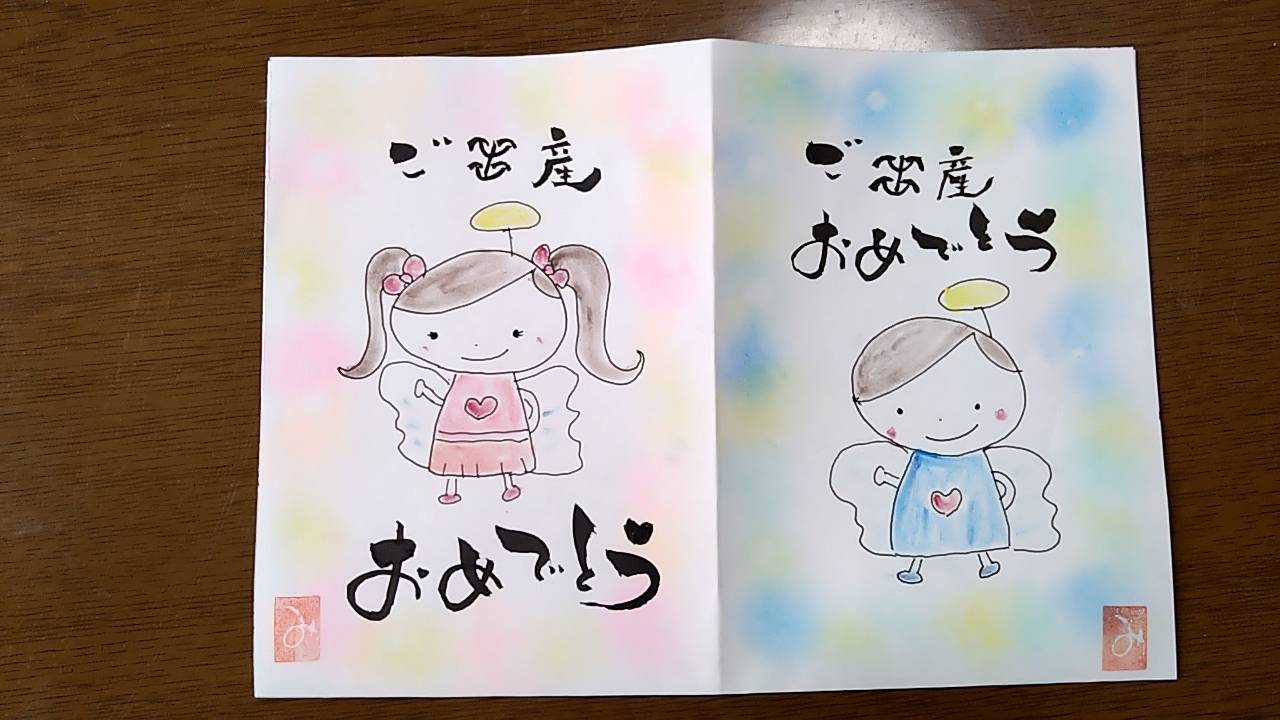 ご出産
おめでとう
み
ご出産
おめでとう
み